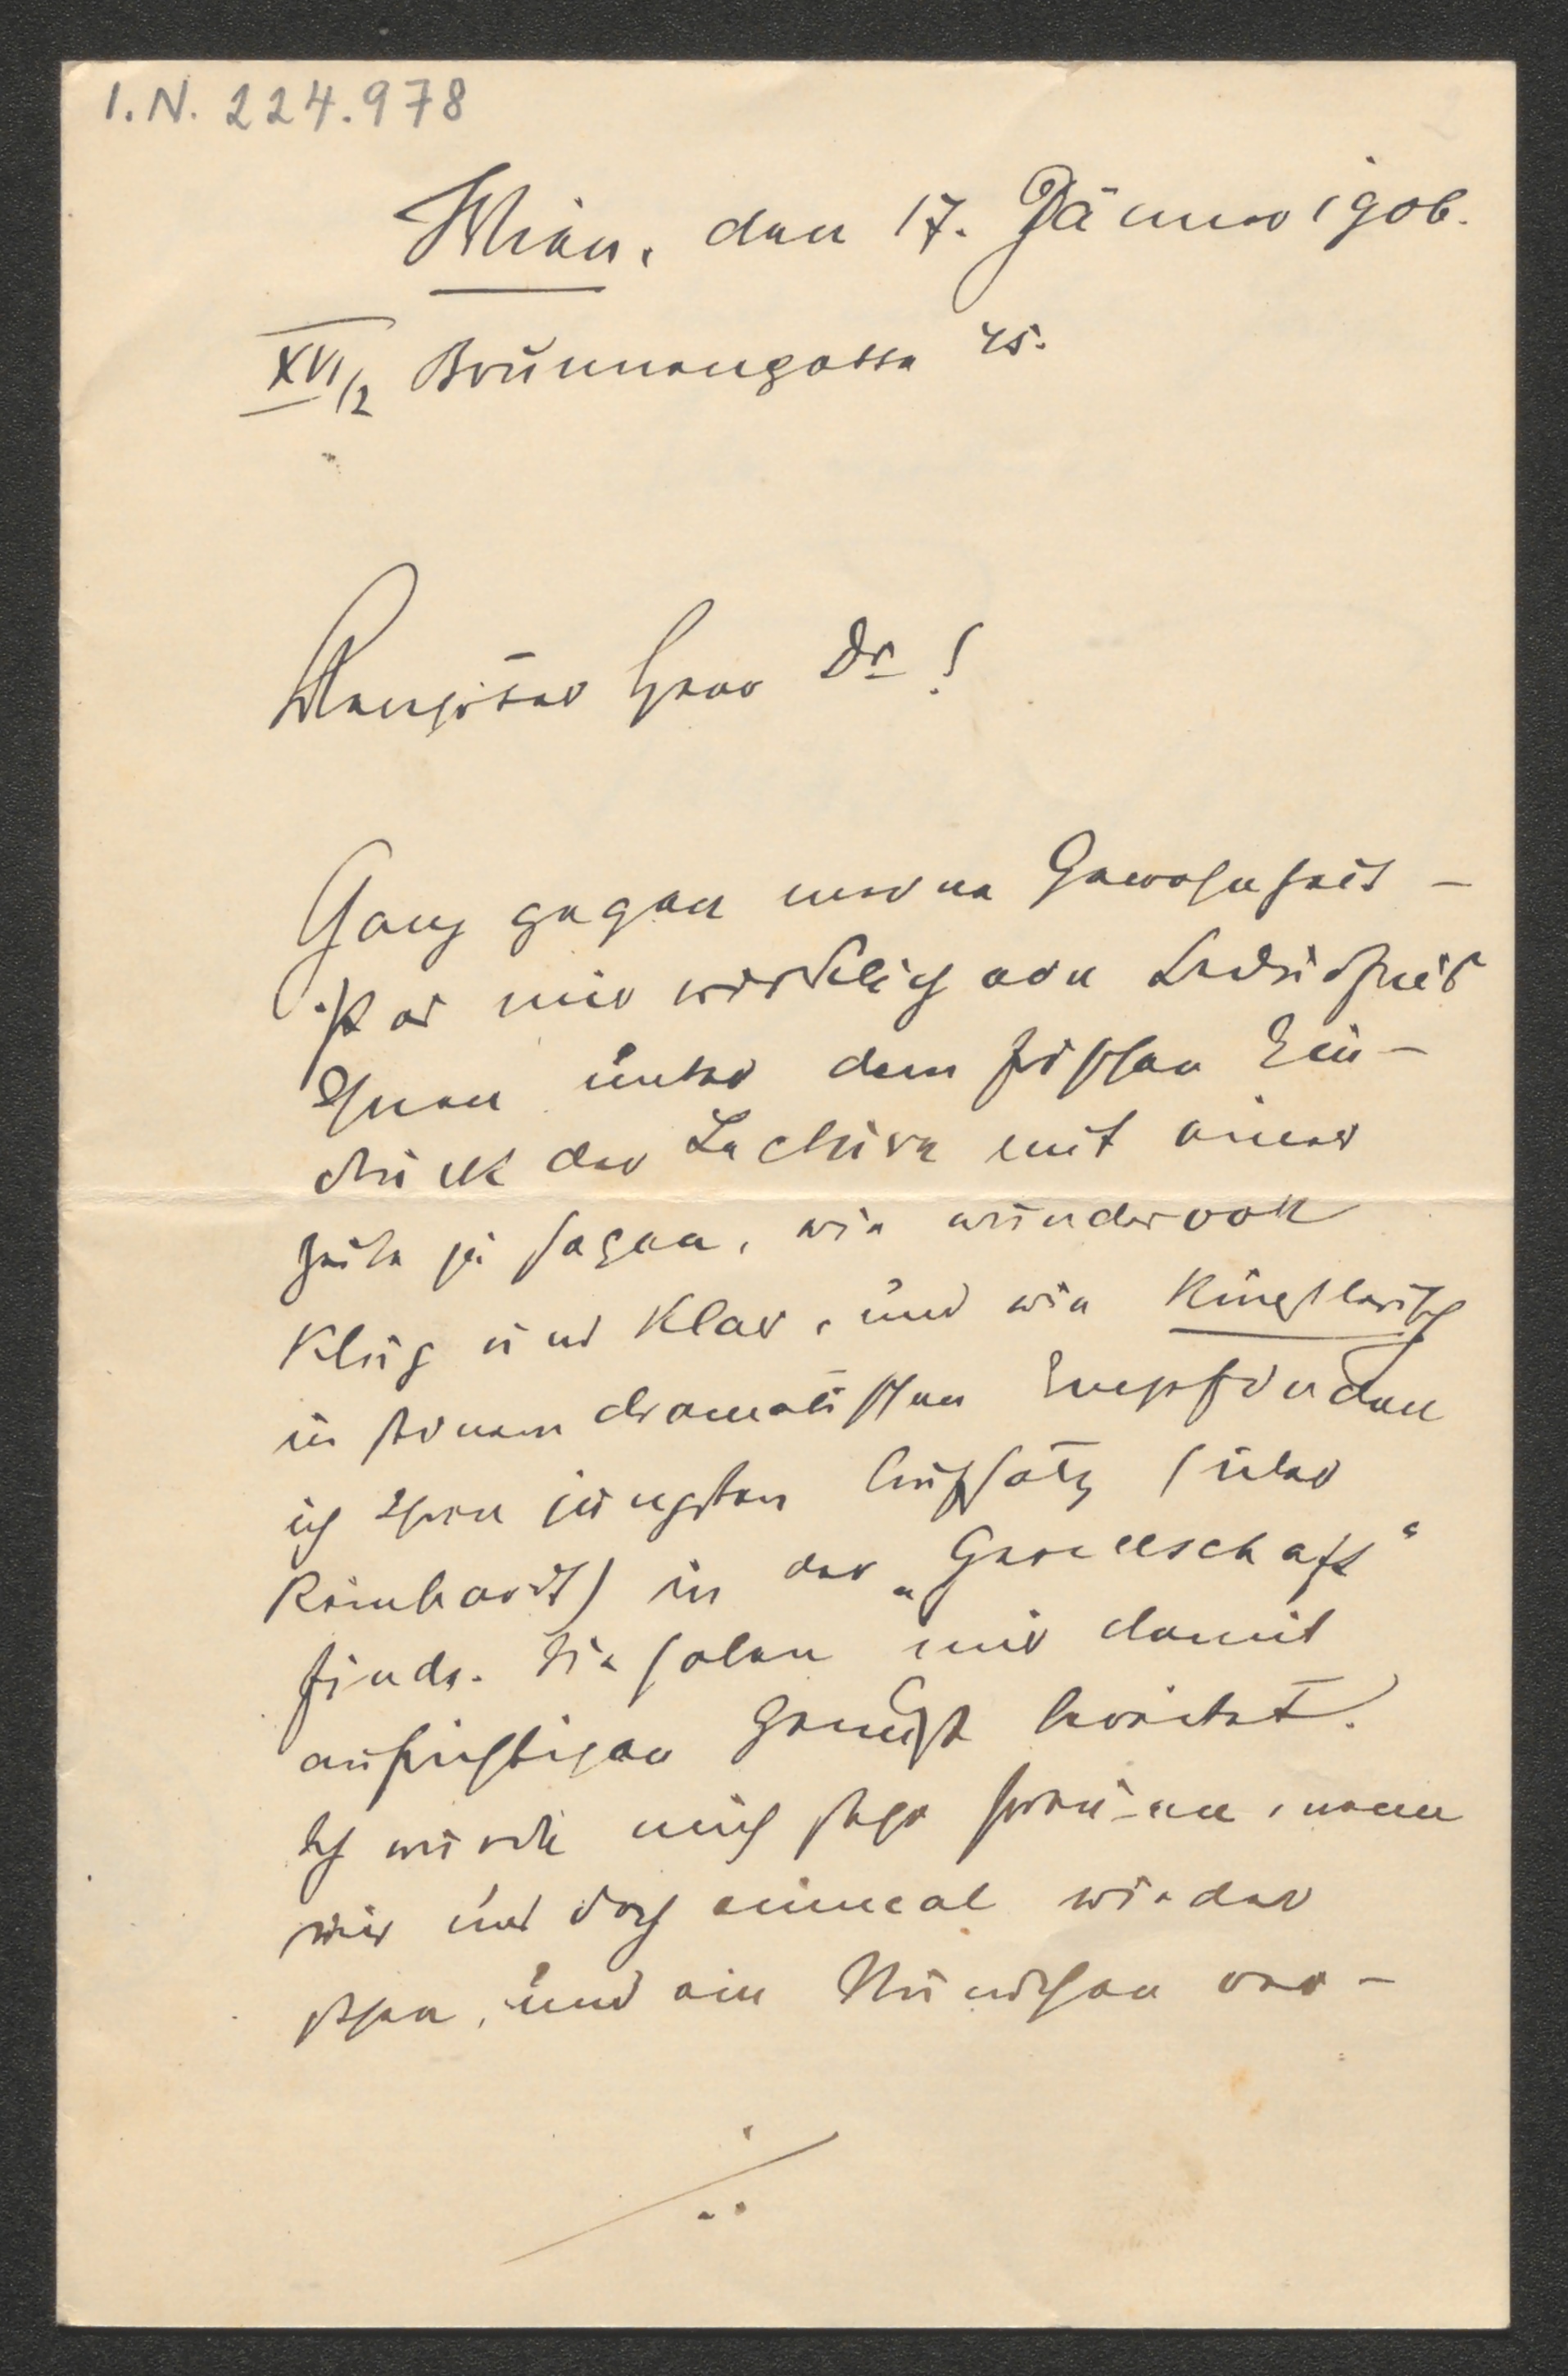 I.N. 224.978
Wien, den 17. Jänner 1906.
XVI/2 Brunnengasse 45.
Verehrter Herr Dr !
Ganz gegen meine Gewohnheit –
ist es mir wirklich ein Bedürfnis
Ihnen unter dem frischen Ein-
druck der Lectüre mit einer
Zeile zu sagen, wie wundervoll
klug und klar, und wie künstlerisch
in seinem dramatischen Empfinden
ich Ihren jüngsten Aufsatz (über
Reinhardt) in der „Gesellschaft“
finde. Sie haben mir damit
aufrichtigen Genuß bereitet.
Ich würde mich sehr freuen, wenn
wir uns doch einmal wieder
sehen, und ein Stündchen ver-
./.